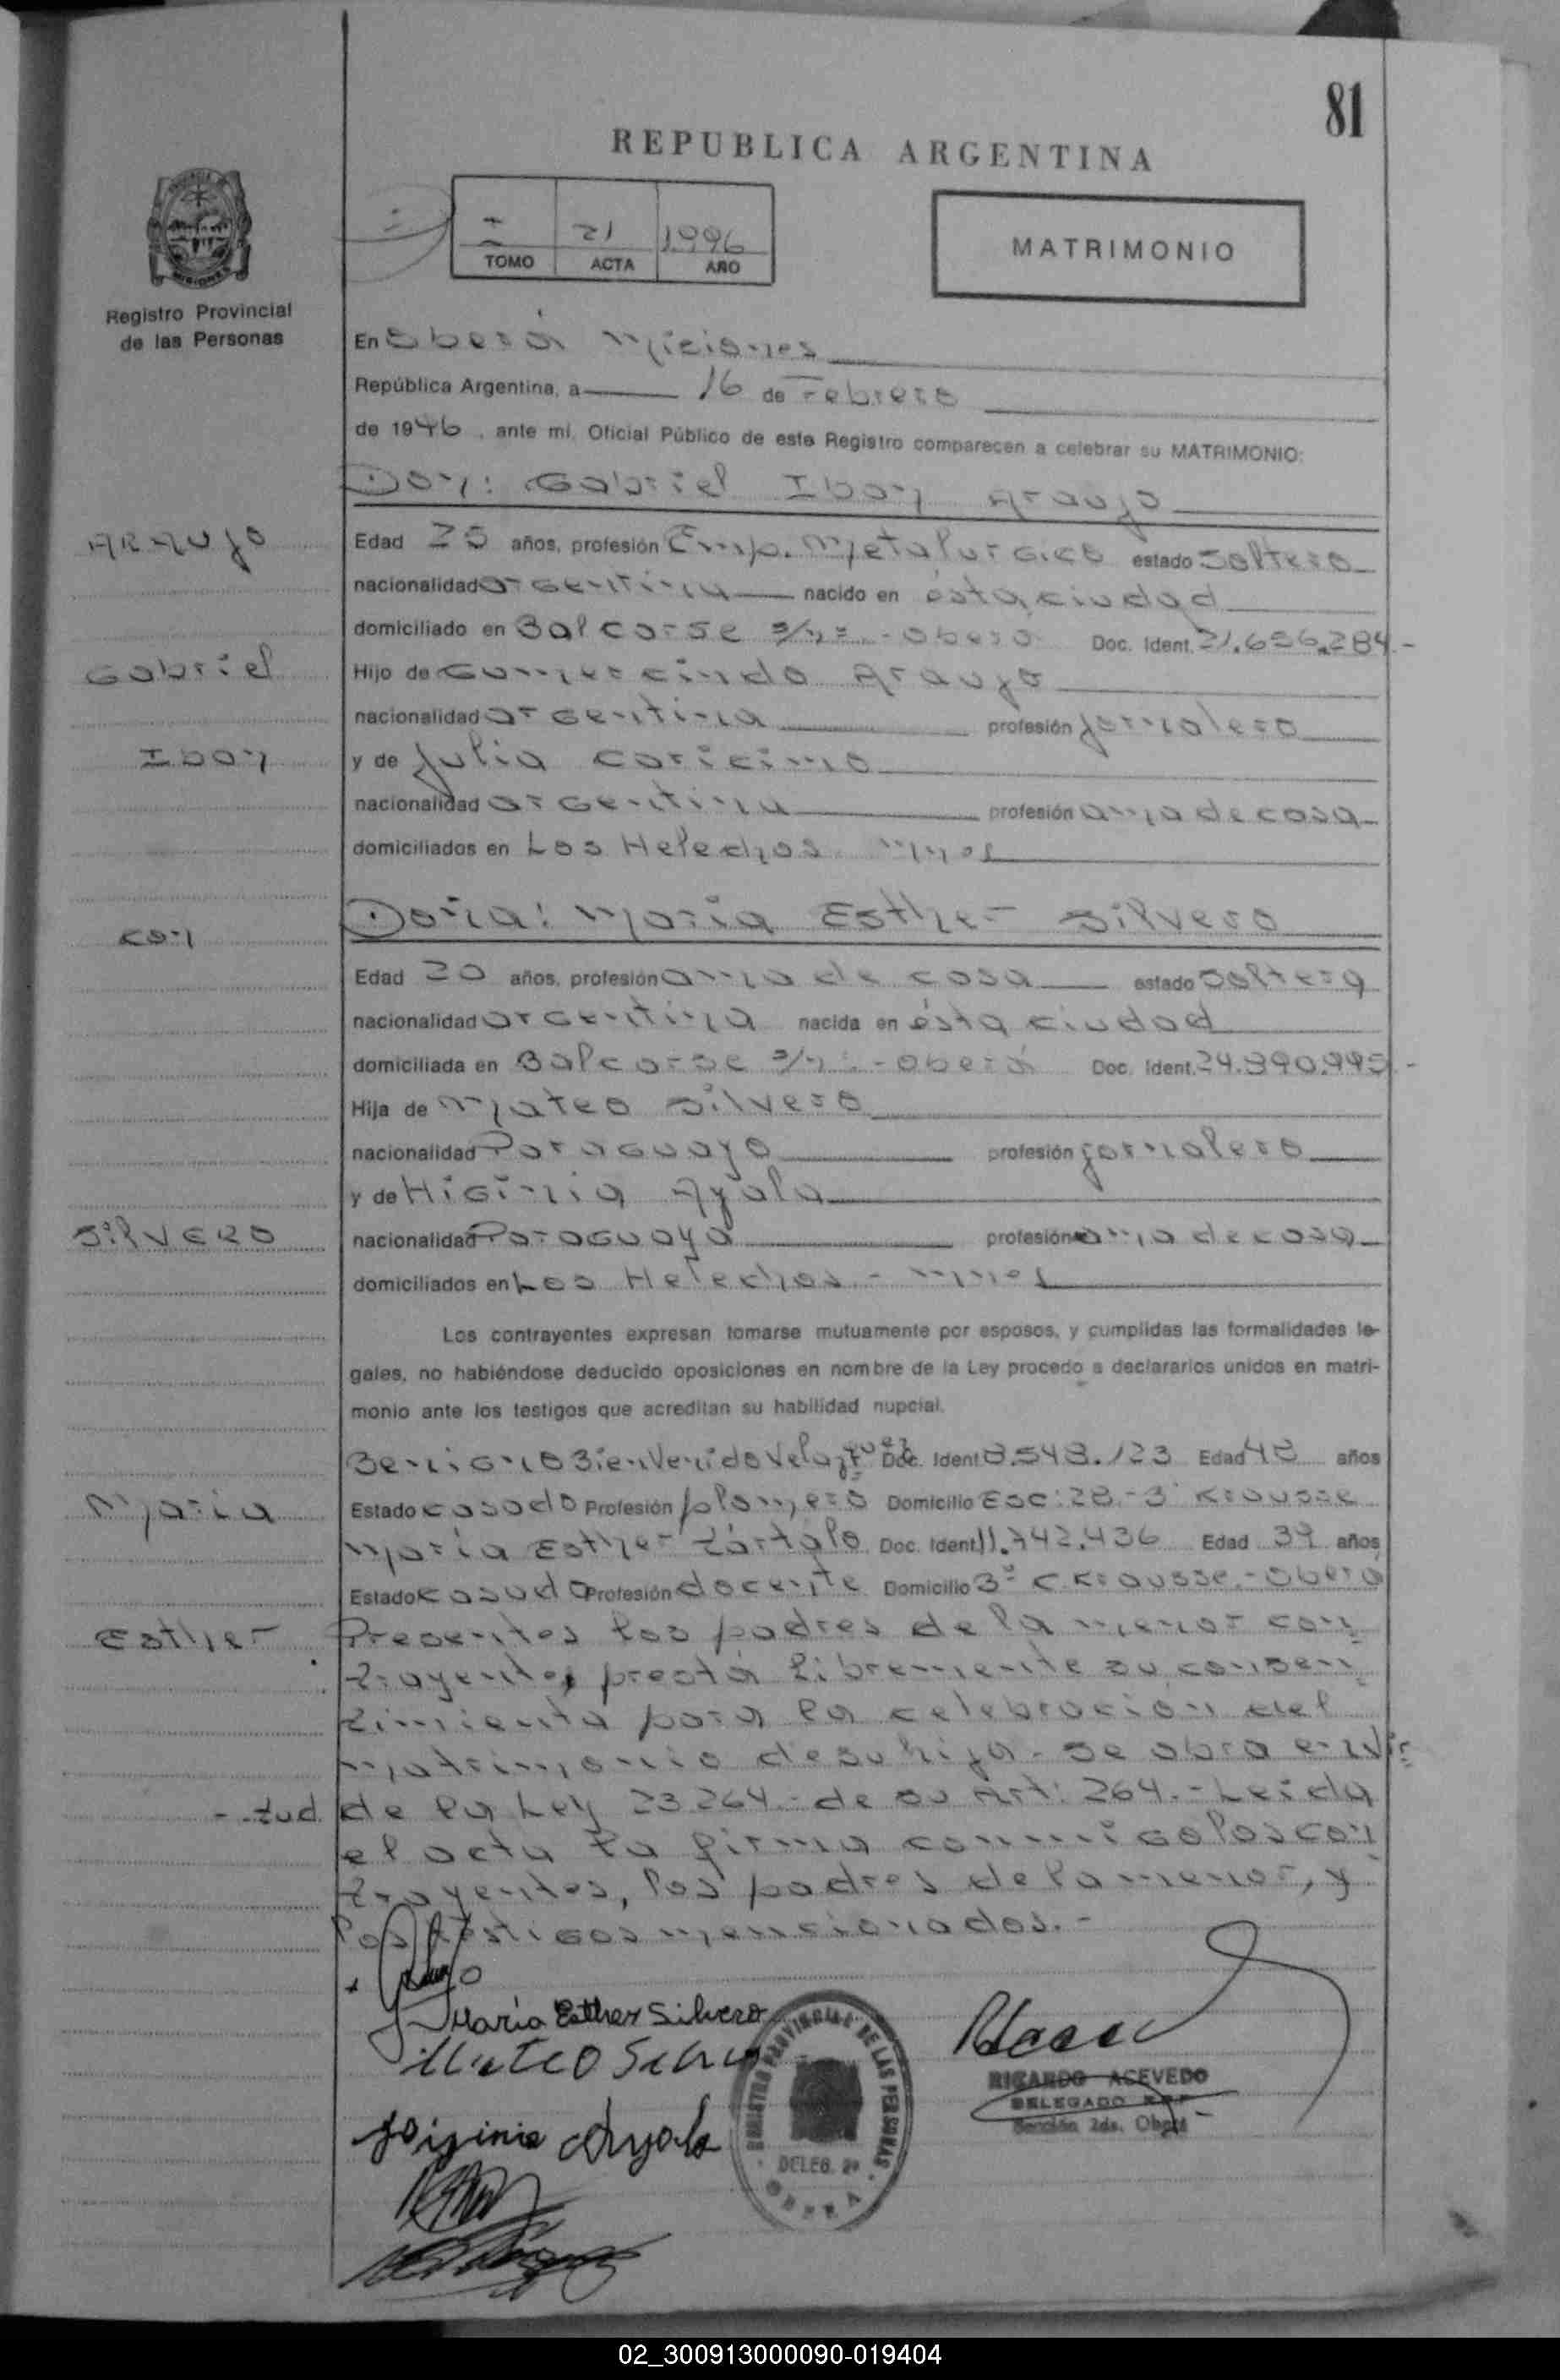 81
REPUBLICA ARGENTINA
I 21 1996
TOMO ACTA AÑO
MATRIMONIO
Registro Provincial
de las Personas
En Oberá Misiones
República Argentina, a 16 de Febrero
de 1996, ante mi, Oficial Público de este Registro comparecen a celebrar su MATRIMONIO:
Don: Gabriel Iban Araujo
ARAUJO
Edad 25 años, profesión Emp. Metalurgico estado Soltero
nacionalidad argentina nacido en ésta ciudad
domiciliado en Balcarse s/nº - Oberá Doc. Ident. 21.656.284.-
Gabriel
Hijo de Gumercindo Araujo
nacionalidad argentina profesión jornalero
Iban
y de Julia Caricimo
nacionalidad argentina profesión ama de casa
domiciliados en Los Helechos Mnes
con
Doña: Maria Esther Silvero
Edad 20 años, profesión ama de casa estado Soltera
nacionalidad argentina nacida en ésta ciudad
domiciliada en Balcarse s/nº - Oberá Doc. Ident. 24.990.995.-
Hija de Mateo Silvero
nacionalidad Paraguayo profesión jornalero
y de Higinia Ayala
SilVERO
nacionalidad Paraguaya profesión ama de casa
domiciliados en Los Helechos - Mnes
Los contrayentes expresan tomarse mutuamente por esposos, y cumplidas las formalidades le-
gales, no habiéndose deducido oposiciones en nombre de la Ley procedo a declararlos unidos en matri-
monio ante los testigos que acreditan su habilidad nupcial.
Benigno Bienvenido Velazquez Doc. Ident 8.548.123 Edad 48 años
Maria
Estado casado Profesión plomero Domicilio Esc: 28.-3º Krausse
Maria Esther Zártalo Doc. Ident 11.742.436 Edad 39 años
Estado casada Profesión docente Domicilio 3º C. Krausse.- Oberá
Esther
Presentes los padres de la menor con
trayente, presta libremente su consen
timiento para la celebración del
matrimonio de su hija.- Se obra en vir
-tud. de la Ley 23.264.- de su Art: 264.- Leida
el acta la firma conmigo los con
trayentes, los padres de la menor, y
los testigos mencionados.-
Maria Esther Silvero
Mateo Silvero
Higinia Ayala
REGISTRO PROVINCIAL DE LAS PERSONAS
DELEG. 2ª
OBERA
RICARDO ACEVEDO
DELEGADO RPP
Sección 2da. Oberá
02_300913000090-019404